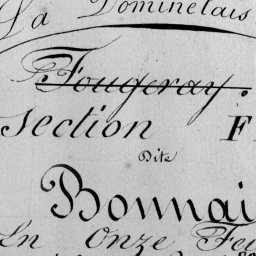 La Dominelais
Fougeray.
Section F
Dite
Bonnai
En Onze Feu